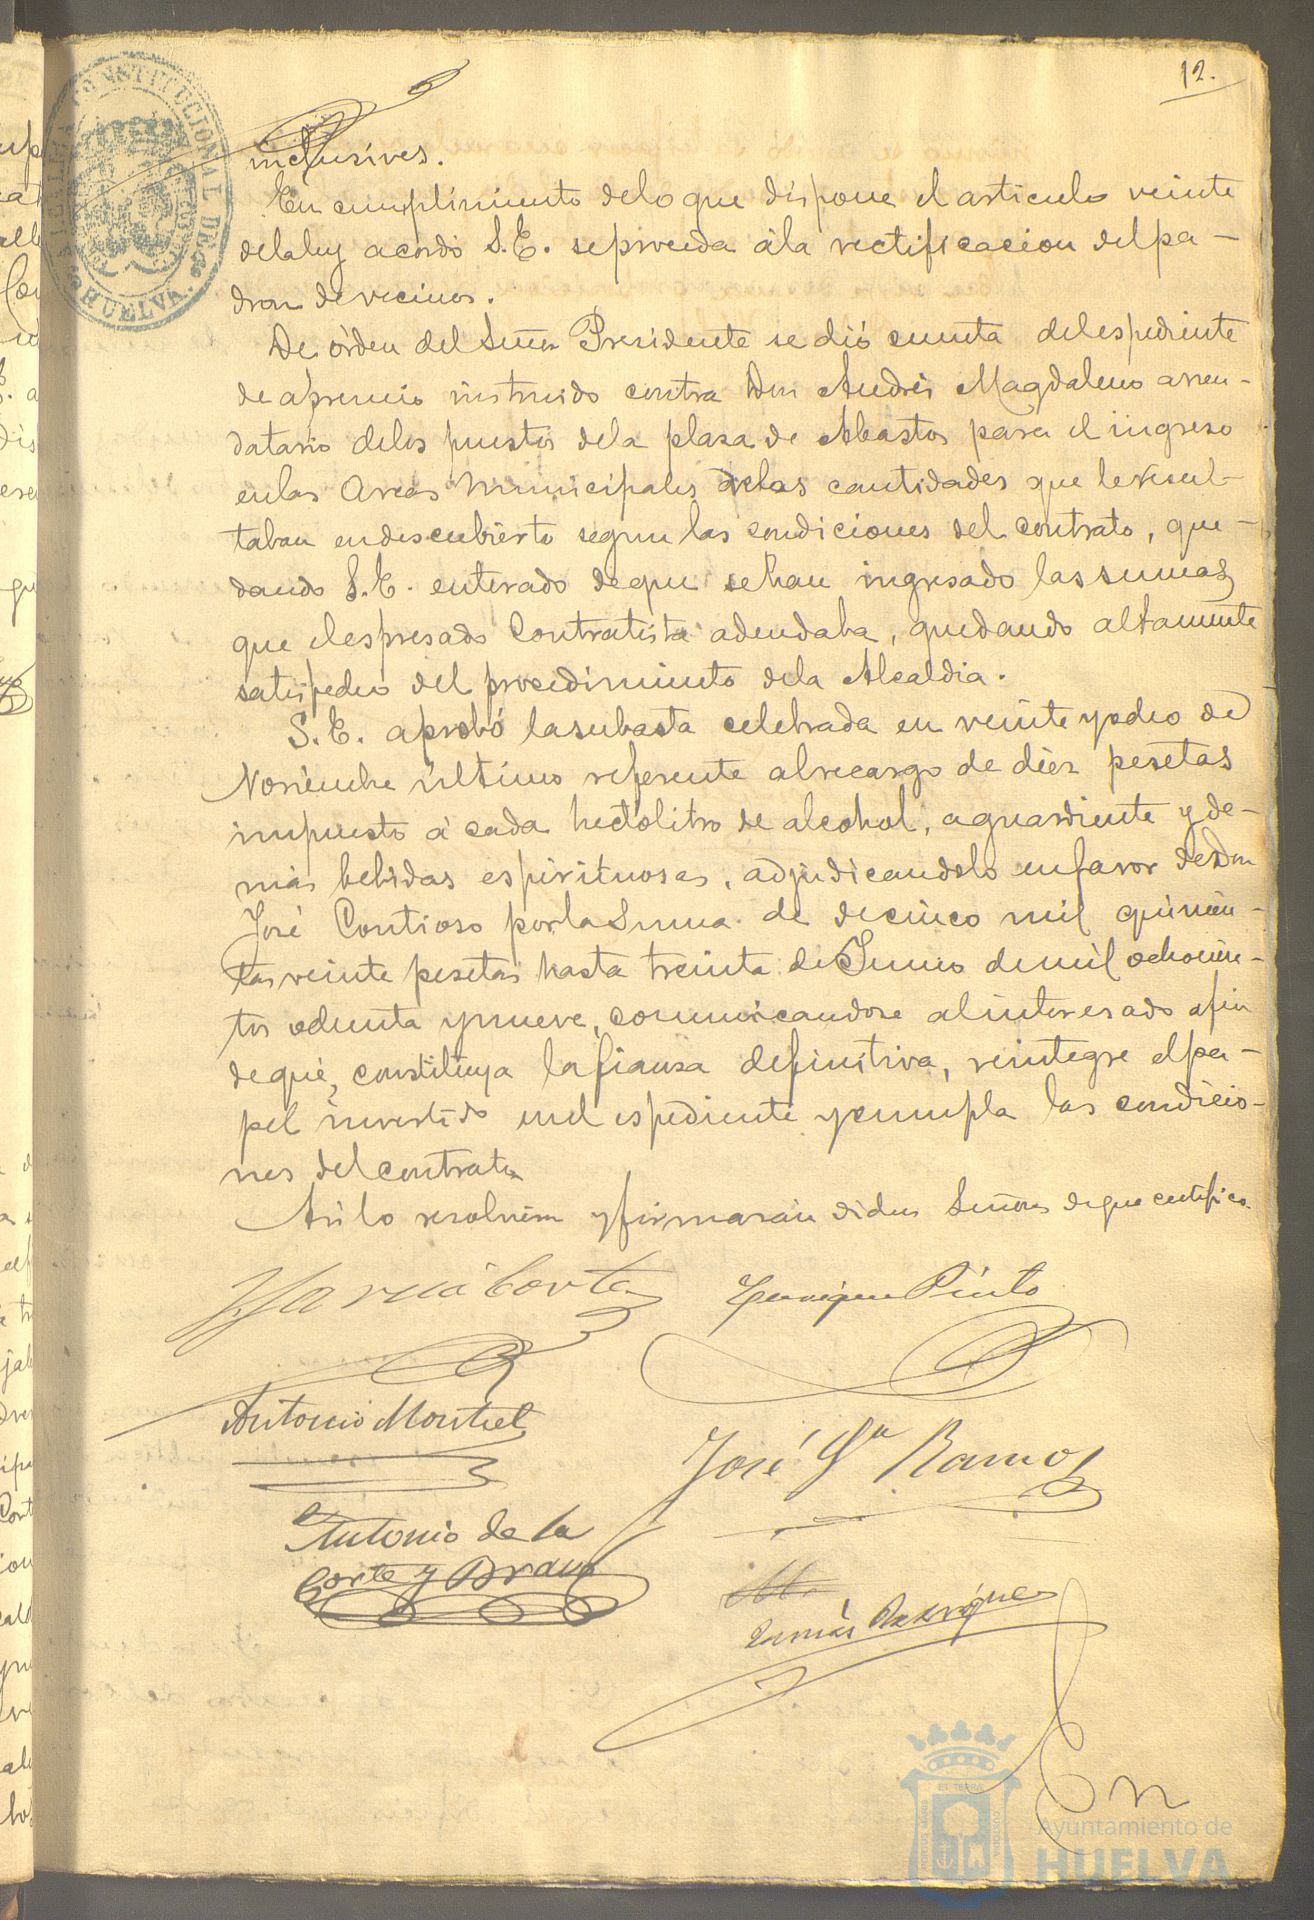 12.
ALCALDIA CONSTITUCIONAL DE HUELVA.
inclusives.
En cumplimiento de lo que dispone el articulo veinte
de la ley acordó S.E. se proceda á la rectificacion del pa-
dron de vecinos.
De órden del Señor Presidente se dió cuenta del espediente
de apremio instruido contra Don Andrés Magdaleno arren-
datario de los puestos de la plaza de Abastos para el ingreso
en las Arcas Municipales de las cantidades que le resul-
taban en descubierto segun las condiciones del contrato, que-
dando S.E. enterado de que se han ingresado las sumas
que el espresado Contratista adeudaba, quedando altamente
satisfecho del procedimiento de la Alcaldia.
S.E. aprobó la subasta celebrada en veinte y ocho de
Noviembre último referente al recargo de diez pesetas
impuesto á cada hectolitro de alcohol, aguardiente y de-
más bebidas espirituosas, adjudicandolo en favor de Don
José Contioso por la Suma de cinco mil quinien-
tas veinte pesetas hasta treinta de Junio de mil ochocien-
tos ochenta y nueve, comunicandose al interesado á fin
de que, constituya la fianza definitiva, reintegre el pa-
pel invertido en el espediente y cumpla las condicio-
nes del contrato
Asi lo resolvieron y firmarán dichos Señores de que certifico.
García Cortes
Enrique Pinto
Antonio Montiel
José Gª Ramos
Antonio de la
Corte y Bravo
Tomás Rodríguez
En
Ayuntamiento de
HUELVA